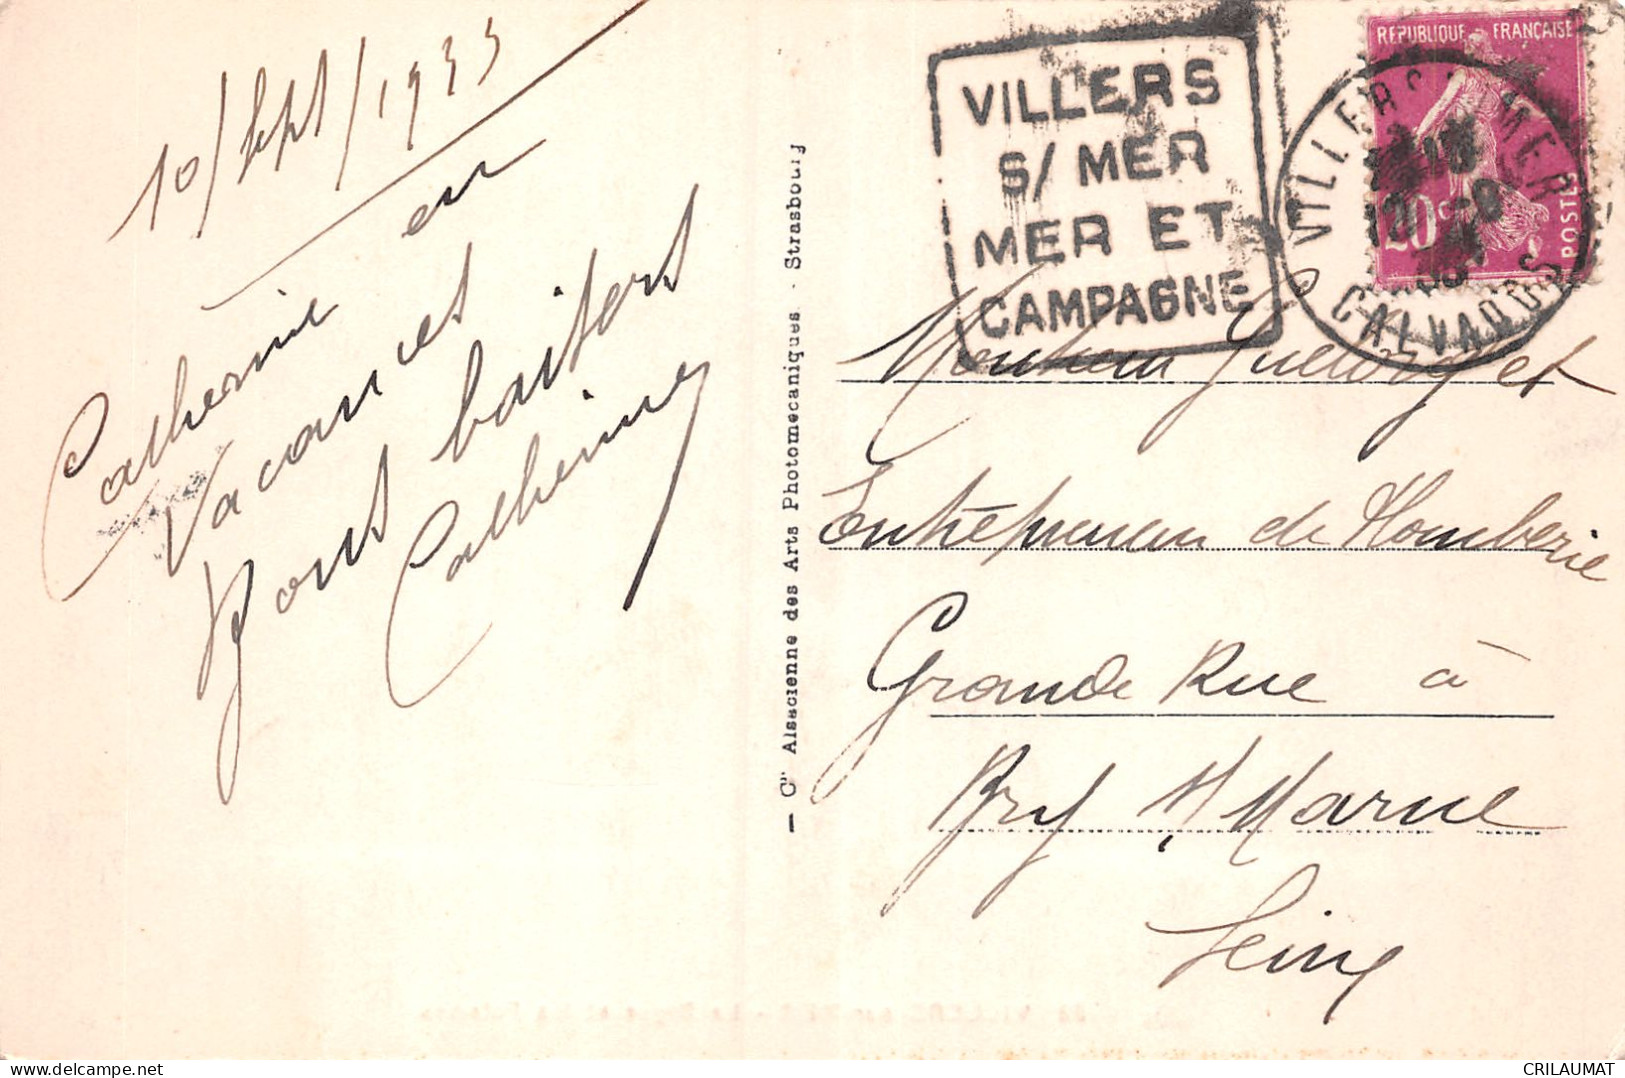 10/Sept/1933
Catherine en
Vacances
Bons baisers
Catherine
— Cie Alsacienne des Arts Photomécaniques - Strasbourg
VILLERS
S/ MER
MER ET
CAMPAGNE
REPUBLIQUE FRANÇAISE
20c
POSTES
VILLERS S MER
CALVADOS
Monsieur et
Entrepreneur de Plomberie
Grande Rue à
Bry s/ Marne
Seine
CRILAUMAT